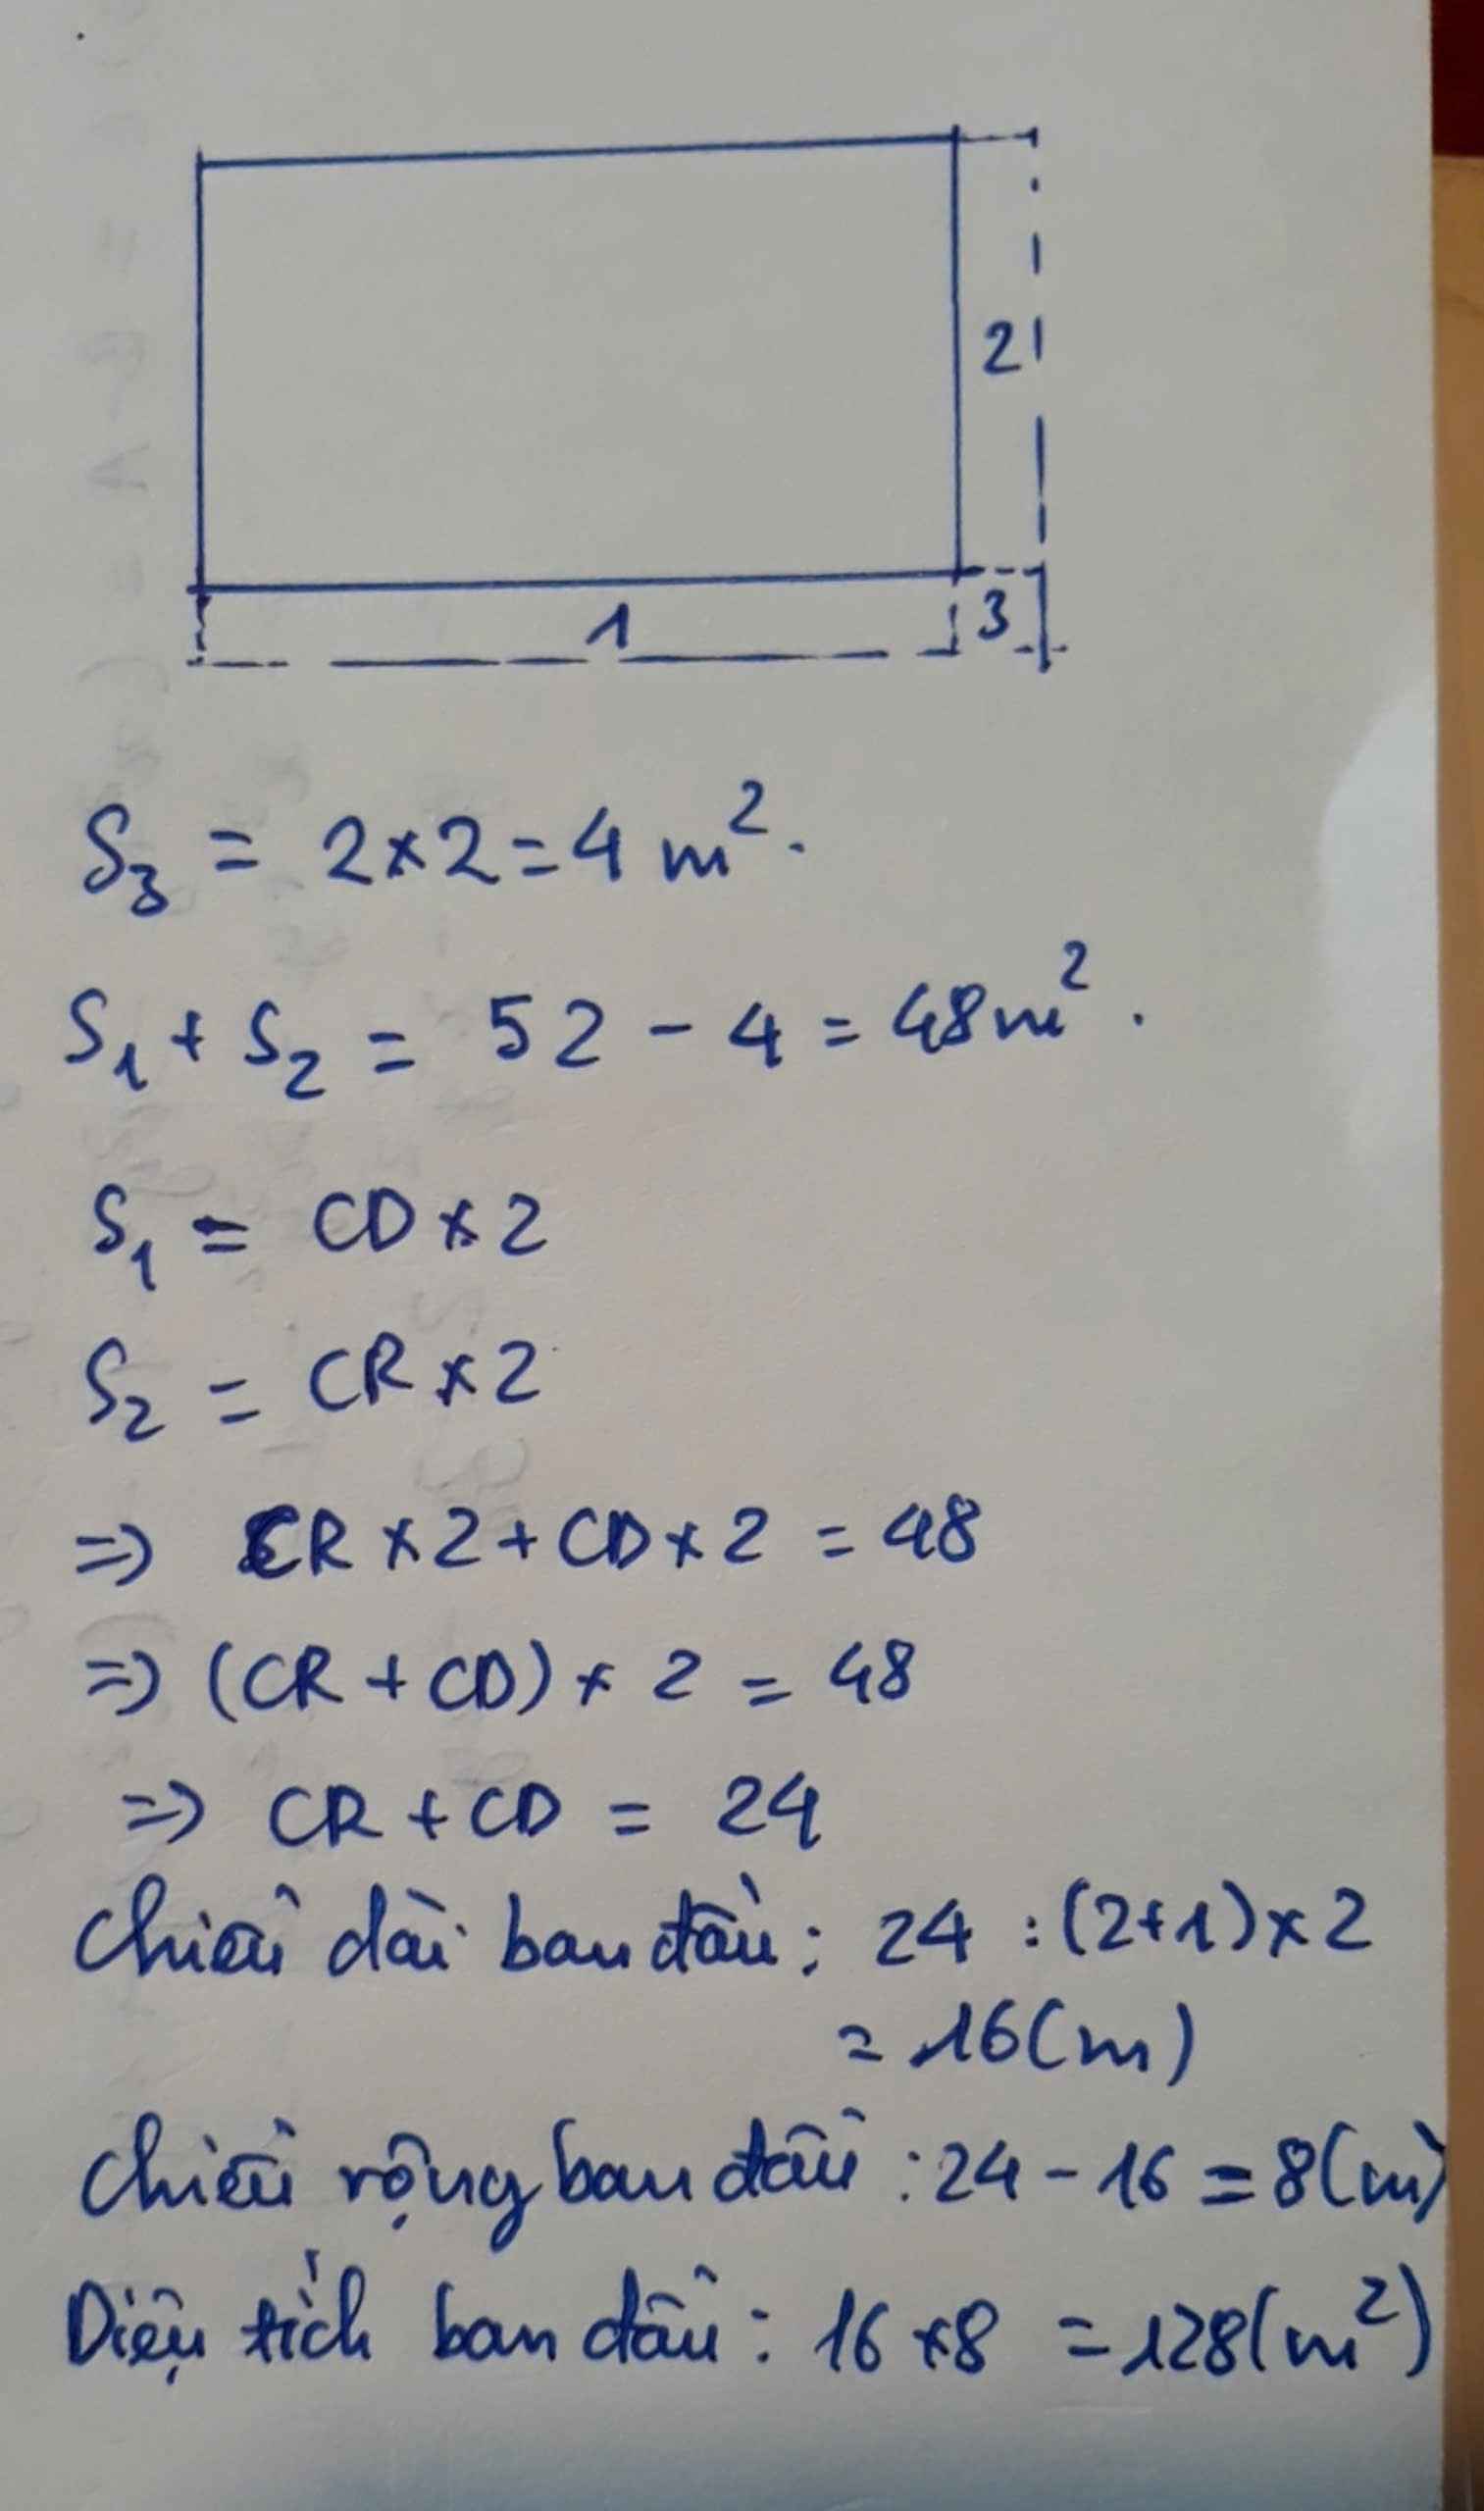 2
1
3
S₃ = 2×2=4 m².
S₁ + S₂ = 52 - 4 = 48m².
S₁ = CD × 2
S₂ = CR × 2
=> CR × 2 + CD × 2 = 48
=> (CR + CD) × 2 = 48
=> CR + CD = 24
Chiều dài ban đầu: 24 : (2+1) × 2
= 16(m)
Chiều rộng ban đầu : 24 - 16 = 8(m)
Diện tích ban đầu : 16 × 8 = 128(m²)